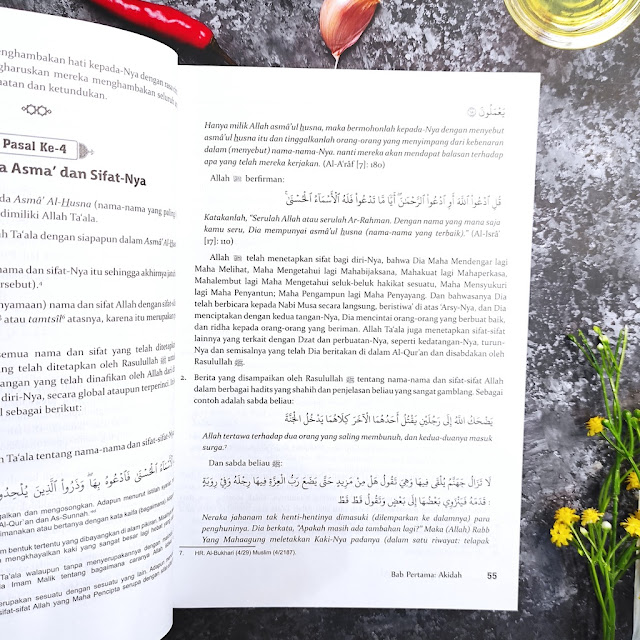 nghambakan hati kepada-Nya dengan rasa
gharuskan mereka menghambakan seluruh
atan dan ketundukan.
Pasal Ke-4
a Asma' dan Sifat-Nya
da Asmâ' Al-Husna (nama-nama yang paling
dimiliki Allah Ta'ala.
h Ta'ala dengan siapapun dalam Asmâ' Al-Hus
nama dan sifat-Nya itu sehingga akhirnya
rsebut).⁴
nyamaan) nama dan sifat Allah dengan sifat
atau tamtsîl⁶ atasnya, karena itu merupakan
semua nama dan sifat yang telah ditetap
yang telah ditetapkan oleh Rasulullah ﷺ
tangan yang telah dinafikan oleh Allah dari
diri-Nya, secara global ataupun terperinci.
l sebagai berikut:
h Ta'ala tentang nama-nama dan sifat-sifat-Ny
الْأَسْمَاءُ الْحُسْنَى فَادْعُوهُ بِهَا وَذَرُوا الَّذِينَ يُلْحِدُو
paikan dan mengosongkan. Adapun menurut istilah
Al-Qur'an dan As-Sunnah.
imanakan atau bertanya dengan kata kaifa (bagaimana).
m bentuk tertentu yang dibayangkan di alam pikiran.
n mengkhayalkan kaki yang sangat besar lagi hebat
Ta'ala walaupun tanpa menyerupakannya dengan
a Imam Malik tentang bagaimana caranya Allah
erupakan sesuatu dengan sesuatu yang lain. Adapun
sifat-sifat Allah yang Maha Pencipta serupa dengan
يَعْمَلُونَ ۝
Hanya milik Allah asmâ'ul husna, maka bermohonlah kepada-Nya dengan menyebut
asmâ'ul husna itu dan tinggalkanlah orang-orang yang menyimpang dari kebenaran
dalam (menyebut) nama-nama-Nya. nanti mereka akan mendapat balasan terhadap
apa yang telah mereka kerjakan. (Al-A'râf [7]: 180)
Allah ﷻ berfirman:
قُلِ ادْعُوا اللَّهَ أَوِ ادْعُوا الرَّحْمَٰنَ أَيًّا مَا تَدْعُوا فَلَهُ الْأَسْمَاءُ الْحُسْنَىٰ
Katakanlah, "Serulah Allah atau serulah Ar-Rahman. Dengan nama yang mana saja
kamu seru, Dia mempunyai asmâ'ul husna (nama-nama yang terbaik)." (Al-Isrâ'
[17]: 110)
Allah ﷻ telah menetapkan sifat bagi diri-Nya, bahwa Dia Maha Mendengar lagi
Maha Melihat, Maha Mengetahui lagi Mahabijaksana, Mahakuat lagi Mahaperkasa,
Mahalembut lagi Maha Mengetahui seluk-beluk hakikat sesuatu, Maha Mensyukuri
lagi Maha Penyantun; Maha Pengampun lagi Maha Penyayang. Dan bahwasanya Dia
telah berbicara kepada Nabi Musa secara langsung, beristiwa' di atas 'Arsy-Nya, dan Dia
menciptakan dengan kedua tangan-Nya, Dia mencintai orang-orang yang berbuat baik,
dan ridha kepada orang-orang yang beriman. Allah Ta'ala juga menetapkan sifat-sifat
lainnya yang terkait dengan Dzat dan perbuatan-Nya, seperti kedatangan-Nya, turun-
Nya dan semisalnya yang telah Dia beritakan di dalam Al-Qur'an dan disabdakan oleh
Rasulullah ﷺ.
2. Berita yang disampaikan oleh Rasulullah ﷺ tentang nama-nama dan sifat-sifat Allah
dalam berbagai hadits yang shahih dan penjelasan beliau yang sangat gamblang. Sebagai
contoh adalah sabda beliau:
يَضْحَكُ اللَّهُ إِلَى رَجُلَيْنِ يَقْتُلُ أَحَدُهُمَا الْآخَرَ كِلَاهُمَا يَدْخُلُ الْجَنَّةَ
Allah tertawa terhadap dua orang yang saling membunuh, dan kedua-duanya masuk
surga.⁷
Dan sabda beliau ﷺ:
لَا تَزَالُ جَهَنَّمُ يُلْقَى فِيهَا وَهِيَ تَقُولُ هَلْ مِنْ مَزِيدٍ حَتَّى يَضَعَ رَبُّ الْعِزَّةِ فِيهَا رِجْلَهُ وَفِي رِوَايَةٍ
: قَدَمَهُ فَيَنْزَوِي بَعْضُهَا إِلَى بَعْضٍ وَتَقُولُ قَطْ قَطْ
Neraka jahanam tak henti-hentinya dimasuki (dilemparkan ke dalamnya) para
penghuninya. Dia berkata, "Apakah masih ada tambahan lagi?" Maka (Allah) Rabb
Yang Mahaagung meletakkan Kaki-Nya padanya (dalam satu riwayat: telapak
7. HR. Al-Bukhari (4/29) Muslim (4/2187).
Bab Pertama: Akidah 55